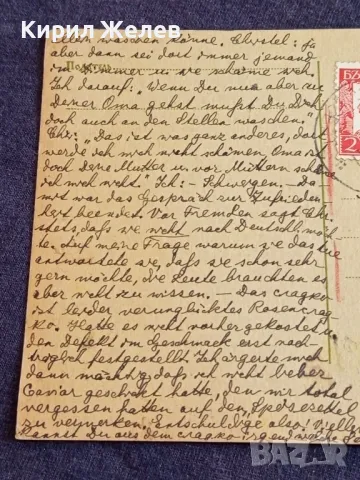 Кирил Желев
selbst waschen könne. Christel: ja
aber dann sei dort immer jemand
im Zimmer u. sie schäme sich.
Ich darauf: „Wenn Du nun aber zu
Deiner Oma gehst mußt Du Dich
doch auch an den Stellen waschen."
Chr: „Das ist was ganz anderes, dort
werde ich mich nicht schämen, Oma ist
doch Deine Mutter u. vor Müttern schäme
ich mich nicht" Ich: – Schweigen. – Da-
mit war das Gespräch zur Zufrieden-
heit beendet. Vor Fremden sagt Chri-
stel, daß sie nicht nach Deutschl. möch-
te. Auf meine Frage warum sie das tue
antwortete sie, daß sie schon sehr
gern möchte, die Leute brauchten es
aber nicht zu wissen. — Das
ist leider verunglücktes Rosen
. Hatte es nicht vorher gekostet u.
den Defekt im Geschmack erst nach-
träglich festgestellt. Ich ärgerte mich
dann mächtig, daß ich nicht lieber
Caviar geschickt hatte, den wir total
vergessen hatten auf den „Speisezettel"
zu vermerken. Entschuldige also! Viell.
kannst Du aus dem irgend
БЪ
2
bazar.bg